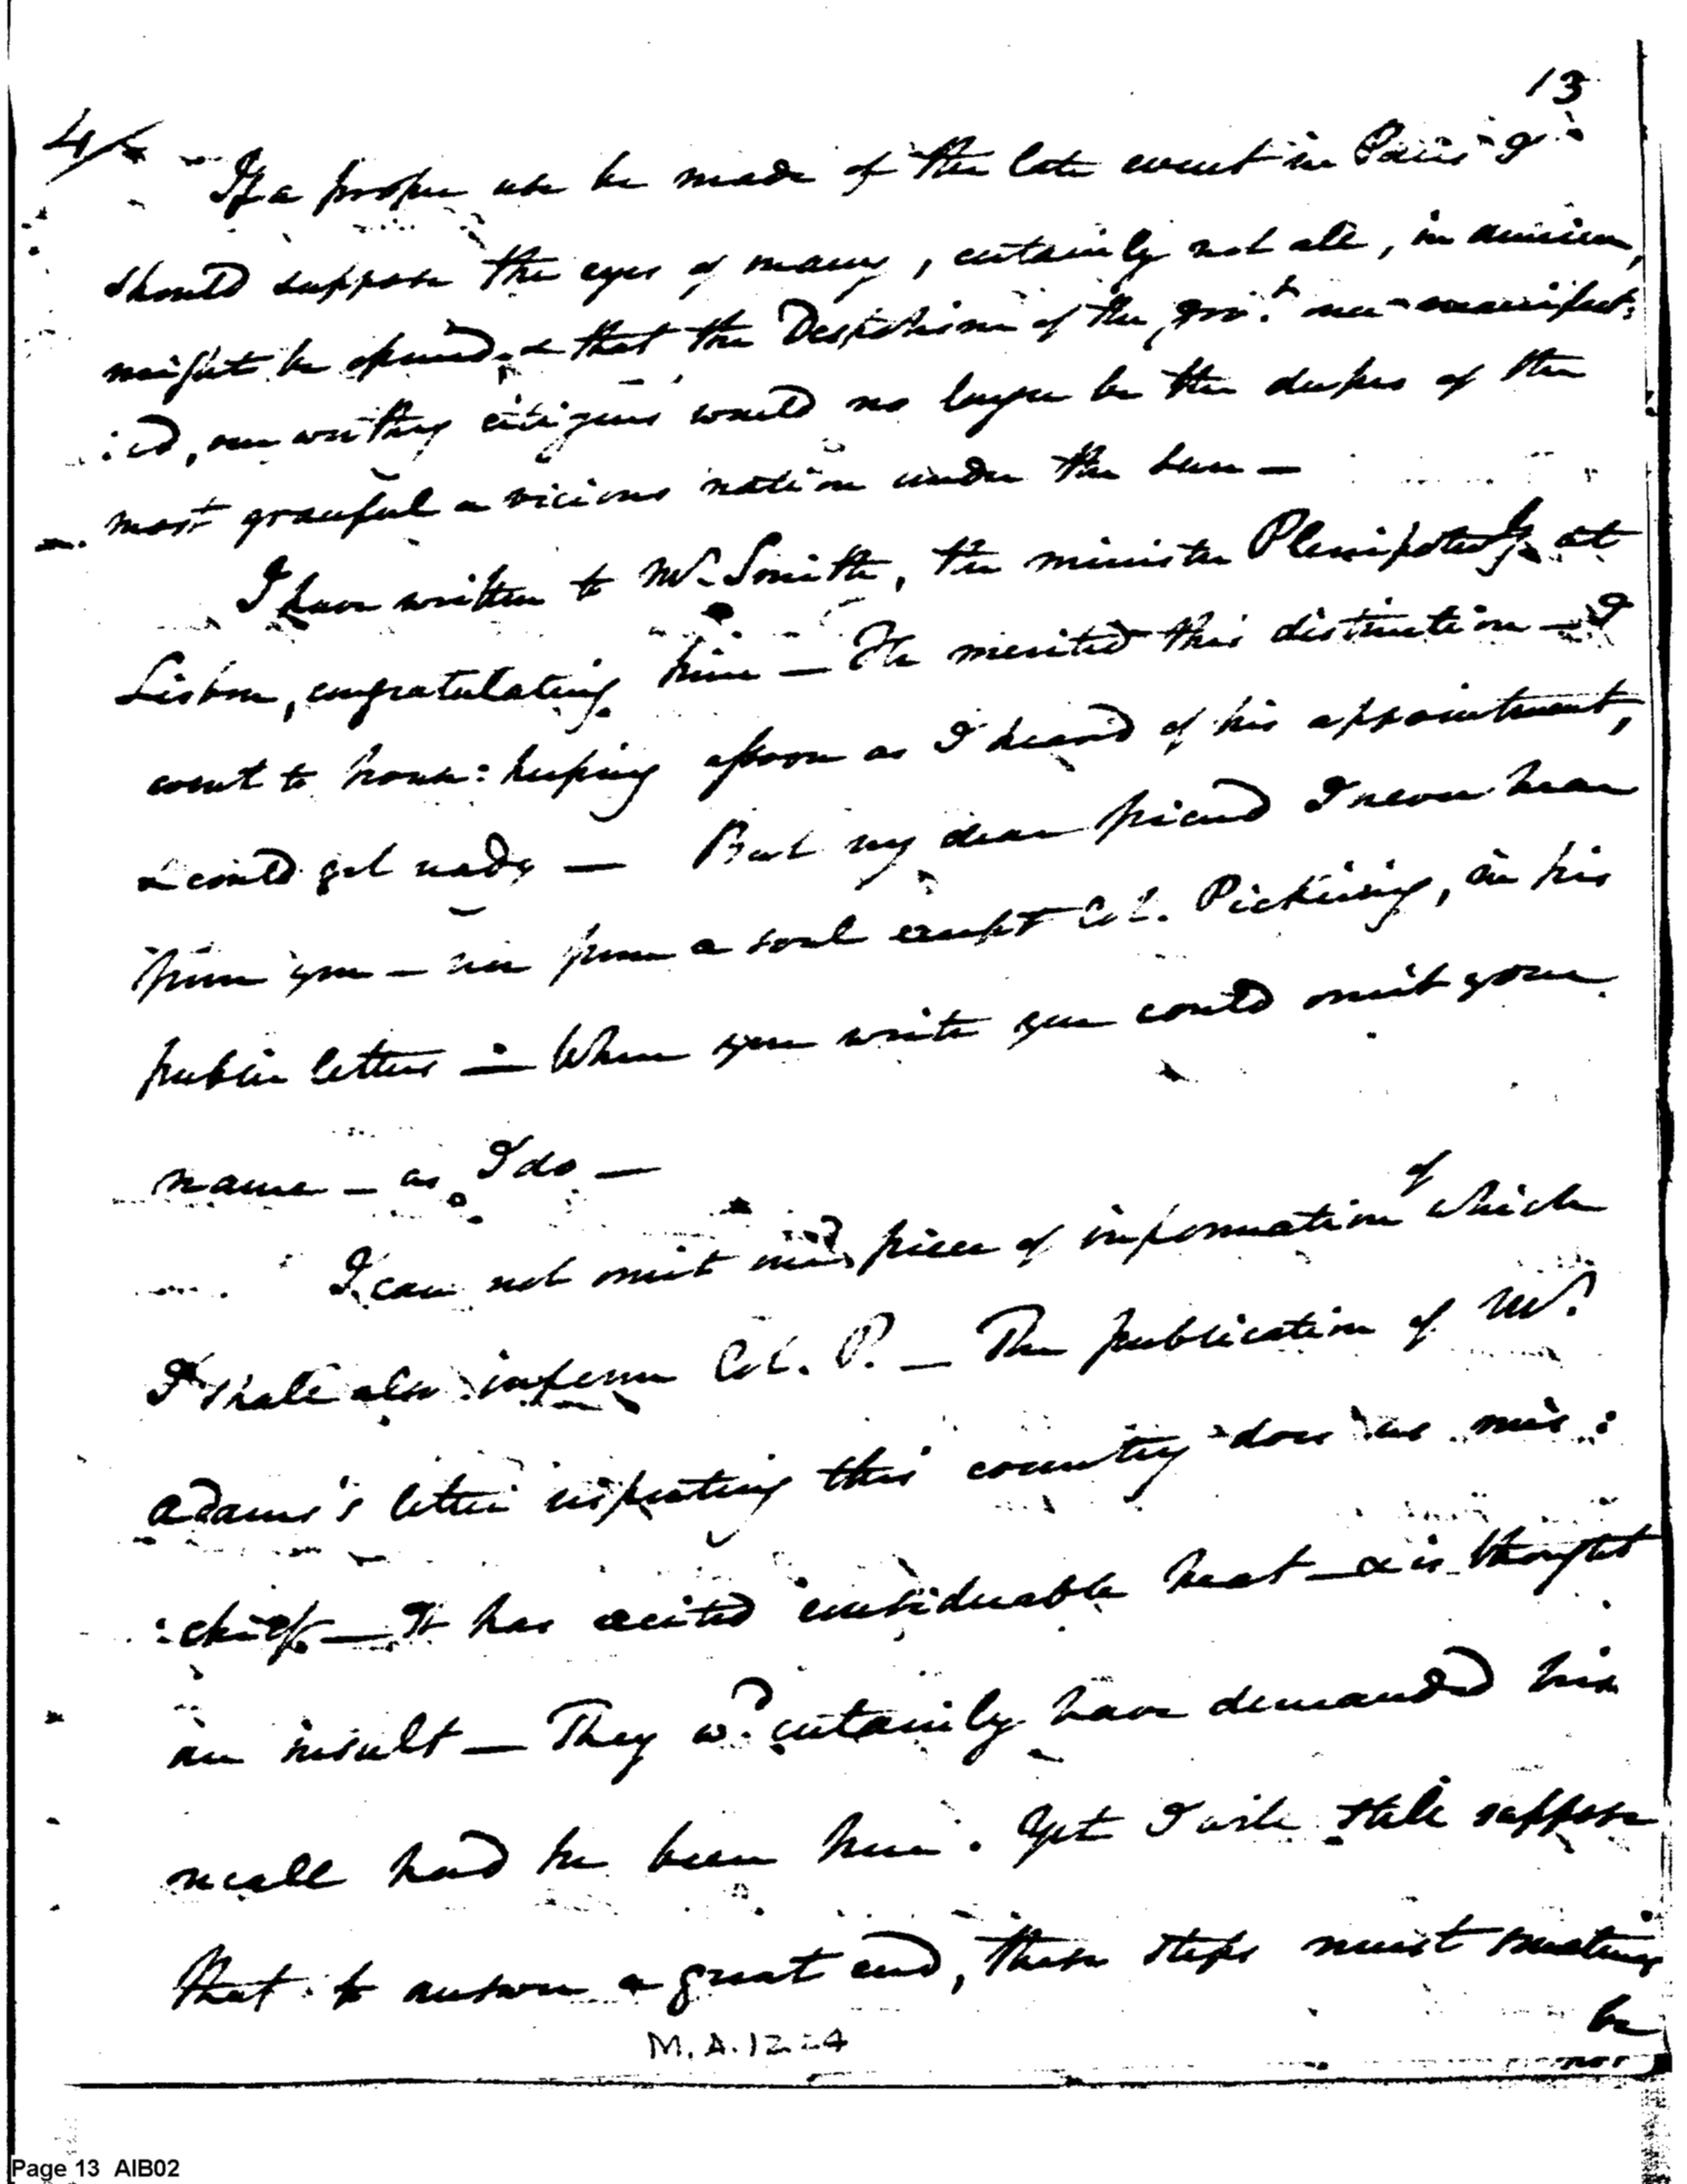 13
4/
If a proper use be made of the late event in Paris I
should suppose the eyes of many, certainly not all, in America,
might be opened, & that the Despotism of the gov.t once manifest:
:ed, our worthy citizens would no longer be the dupes of the
most & vicious nation under the sun —
I have written to Mr. Smith, the minister Plenipotent.y at
Lisbon, congratulating him — He merited this distinction — I
went to house:keeping assoon as I heard of his appointment,
& could get ready — But my dear friend I never hear
from you — nor from a soul except Col. Pickering, in his
public letters — When you write you could omit your
name — as I do —
I can not omit one piece of information of which
I shall also inform Col. P. — The publication of Mr.
Adams's letter respecting this country does us mis:
:chief — It has excited considerable heat — & is thought
an insult — They w.d certainly have demanded his
recall had he been here. Yet I will still suppose
that to answer a great end, these steps must sometimes
be
M.A. 1224
Page 13 AIB02